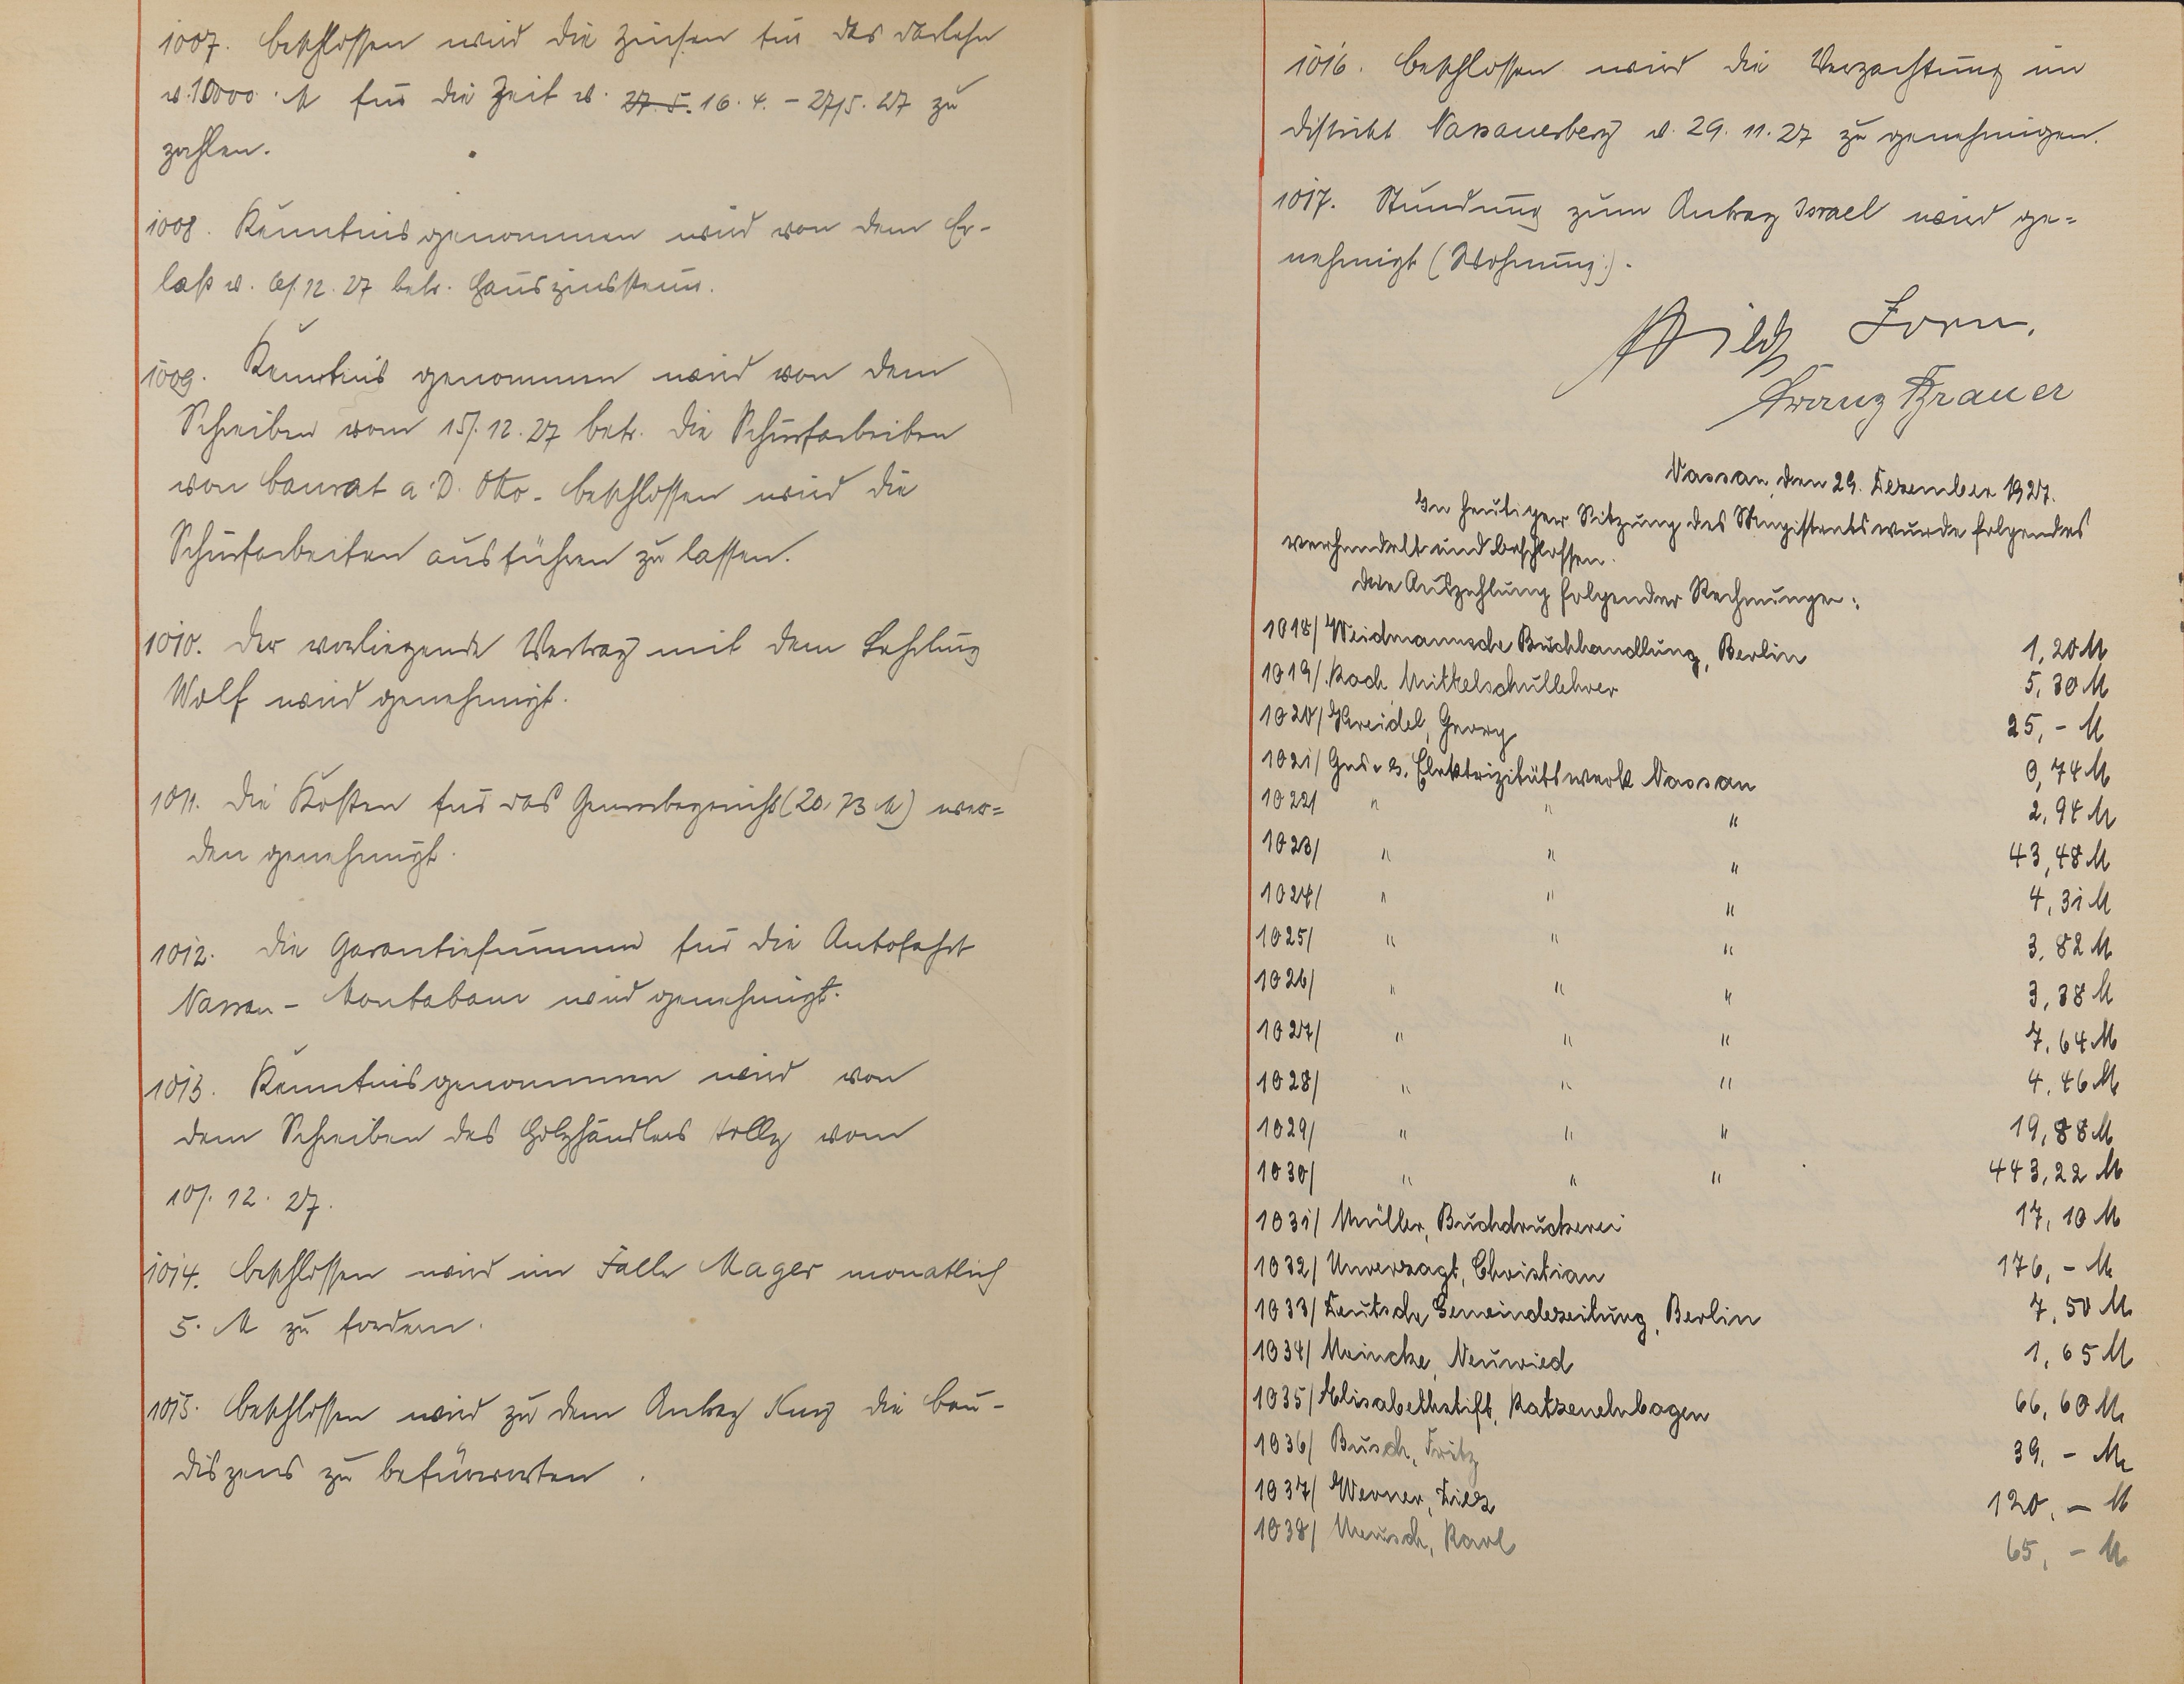 1007. Beschlossen wird die Zinsen für das Darlehn
v. 10000. M für die Zeit v. 27. 5. 16. 4. - 27/5. 27 zu
zahlen.
1008. Kenntnis genommen wird von dem Er-
laß v. 6/12. 27 betr. Hauszinssteuer.
1009. Kenntnis genommen wird von dem
Schreiben vom 15/. 12. 27 betr. die Schürfarbeiten
von Baurat a. D. Otto. Beschlossen wird die
Schürfarbeiten ausführen zu lassen.
1010. Der vorliegende Vertrag mit dem Lehrling
Wolf wird genehmigt.
1011. Die Kosten für das (20,73 M) wer=
den genehmigt.
1012. Die Garantiesumme für die Autofahrt
Nassau - Montabaur wird genehmigt.
1013. Kenntnis genommen wird von
dem Schreiben des Holzhändlers vom
10/. 12. 27.
1014. Beschlossen wird im Falle Mager monatlich
5. M zu fordern.
1015. Beschlossen wird zu dem Antrag die Bau-
dispens zu befürworten.
1016. Beschlossen wird die Verpachtung im
Distrikt Nassauerberg v. 29. 11. 27 zu genehmigen.
1017. Stundung zum Antrag Israel wird ge=
nehmigt (Wohnung).
Zorn.
Franz Brauer
Nassau, den 29. Dezember 1927.
In heutiger Sitzung des Magistrats wurde folgendes
verhandelt und beschlossen.
Die Auszahlung folgender Rechnungen:
1018/ Weidmannsche Buchhandlung, Berlin 1,20 M
1019/ Koch, Mittelschullehrer 5,30 M
1020/ Kreidel, Georg 25,- M
1021/ Gas- u. Elektrizitätswerk Nassau 0,74 M
1022/ " " " 2,94 M
1023/ " " " 43,48 M
1024/ " " " 4,31 M
1025/ " " " 3,82 M
1026/ " " " 3,38 M
1027/ " " " 7,64 M
1028/ " " " 4,46 M
1029/ " " " 19,88 M
1030/ " " " 443,22 M
1031/ Müller, Buchdruckerei 17,10 M
1032/ Unverzagt, Christian 176,- M
1033/ Deutsche Gemeindezeitung, Berlin 7,50 M
1034/ Meincke, Neuwied 1,65 M
1035/ Elisabethstift, Katzenelnbogen 66,60 M
1036/ Busch, Fritz 39,- M
1037/ Werner, Diez 120,- M
1038/ Meusch, Karl 65,- M